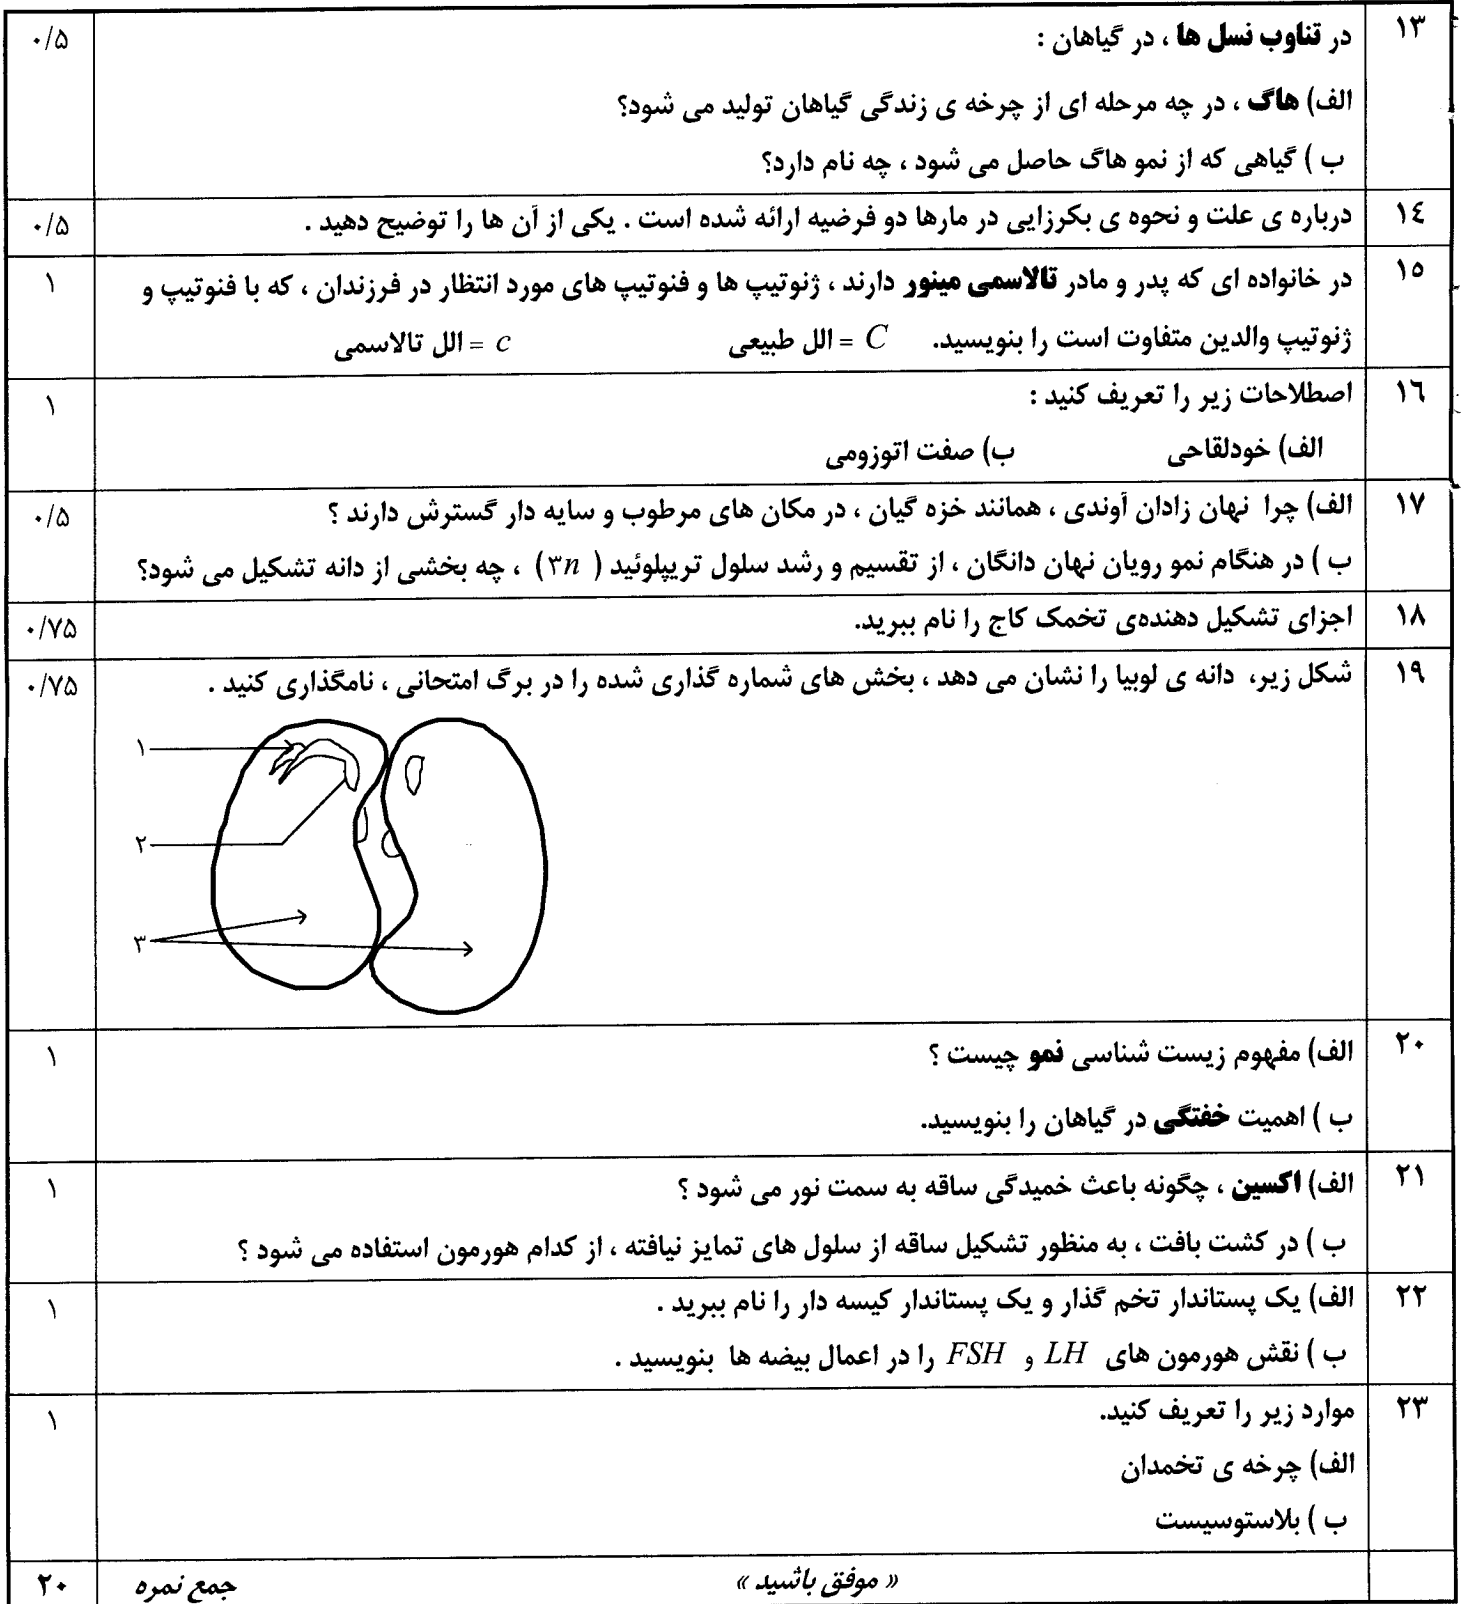 ۱۳ در تناوب نسل ها ، در گیاهان : ۰/۵
الف) هاگ ، در چه مرحله ای از چرخه ی زندگی گیاهان تولید می شود؟
ب ) گیاهی که از نمو هاگ حاصل می شود ، چه نام دارد؟
۱٤ درباره ی علت و نحوه ی بکرزایی در مارها دو فرضیه ارائه شده است . یکی از آن ها را توضیح دهید . ۰/۵
۱٥ در خانواده ای که پدر و مادر تالاسمی مینور دارند ، ژنوتیپ ها و فنوتیپ های مورد انتظار در فرزندان ، که با فنوتیپ و ۱
ژنوتیپ والدین متفاوت است را بنویسید. C = الل طبیعی c = الل تالاسمی
۱٦ اصطلاحات زیر را تعریف کنید : ۱
الف) خودلقاحی ب) صفت اتوزومی
۱۷ الف) چرا نهان زادان آوندی ، همانند خزه گیان ، در مکان های مرطوب و سایه دار گسترش دارند ؟ ۰/۵
ب ) در هنگام نمو رویان نهان دانگان ، از تقسیم و رشد سلول تریپلوئید ( ۳n ) ، چه بخشی از دانه تشکیل می شود؟
۱۸ اجزای تشکیل دهنده‌ی تخمک کاج را نام ببرید. ۰/۷۵
۱۹ شکل زیر، دانه ی لوبیا را نشان می دهد ، بخش های شماره گذاری شده را در برگ امتحانی ، نامگذاری کنید . ۰/۷۵
۱
۲
۳
۲۰ الف) مفهوم زیست شناسی نمو چیست ؟ ۱
ب ) اهمیت خفتگی در گیاهان را بنویسید.
۲۱ الف) اکسین ، چگونه باعث خمیدگی ساقه به سمت نور می شود ؟ ۱
ب ) در کشت بافت ، به منظور تشکیل ساقه از سلول های تمایز نیافته ، از کدام هورمون استفاده می شود ؟
۲۲ الف) یک پستاندار تخم گذار و یک پستاندار کیسه دار را نام ببرید . ۱
ب ) نقش هورمون های LH و FSH را در اعمال بیضه ها بنویسید .
۲۳ موارد زیر را تعریف کنید. ۱
الف) چرخه ی تخمدان
ب ) بلاستوسیست
« موفق باشید » جمع نمره ۲۰